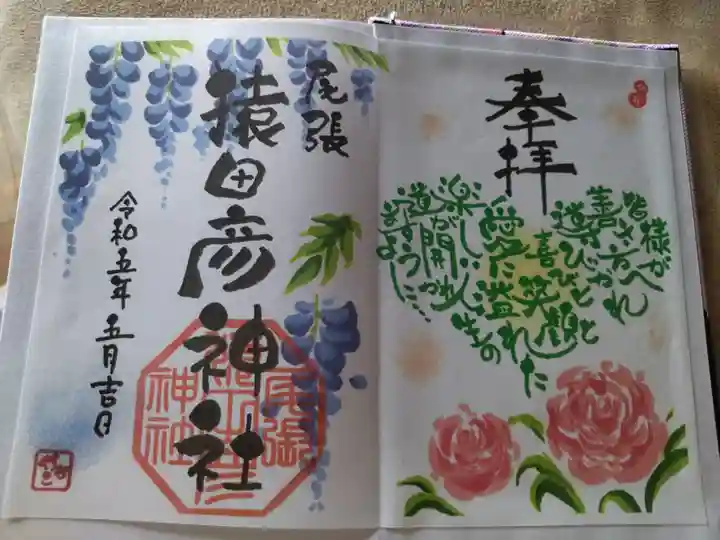 奉拝
皆様が
善き方へ
導びかれ
喜びと笑顔と
愛に溢れた
楽しい人生の
道が開かれ
ますように……
尾張
猿田彦神社
令和五年 五月吉日
尾張
猿田彦
神社